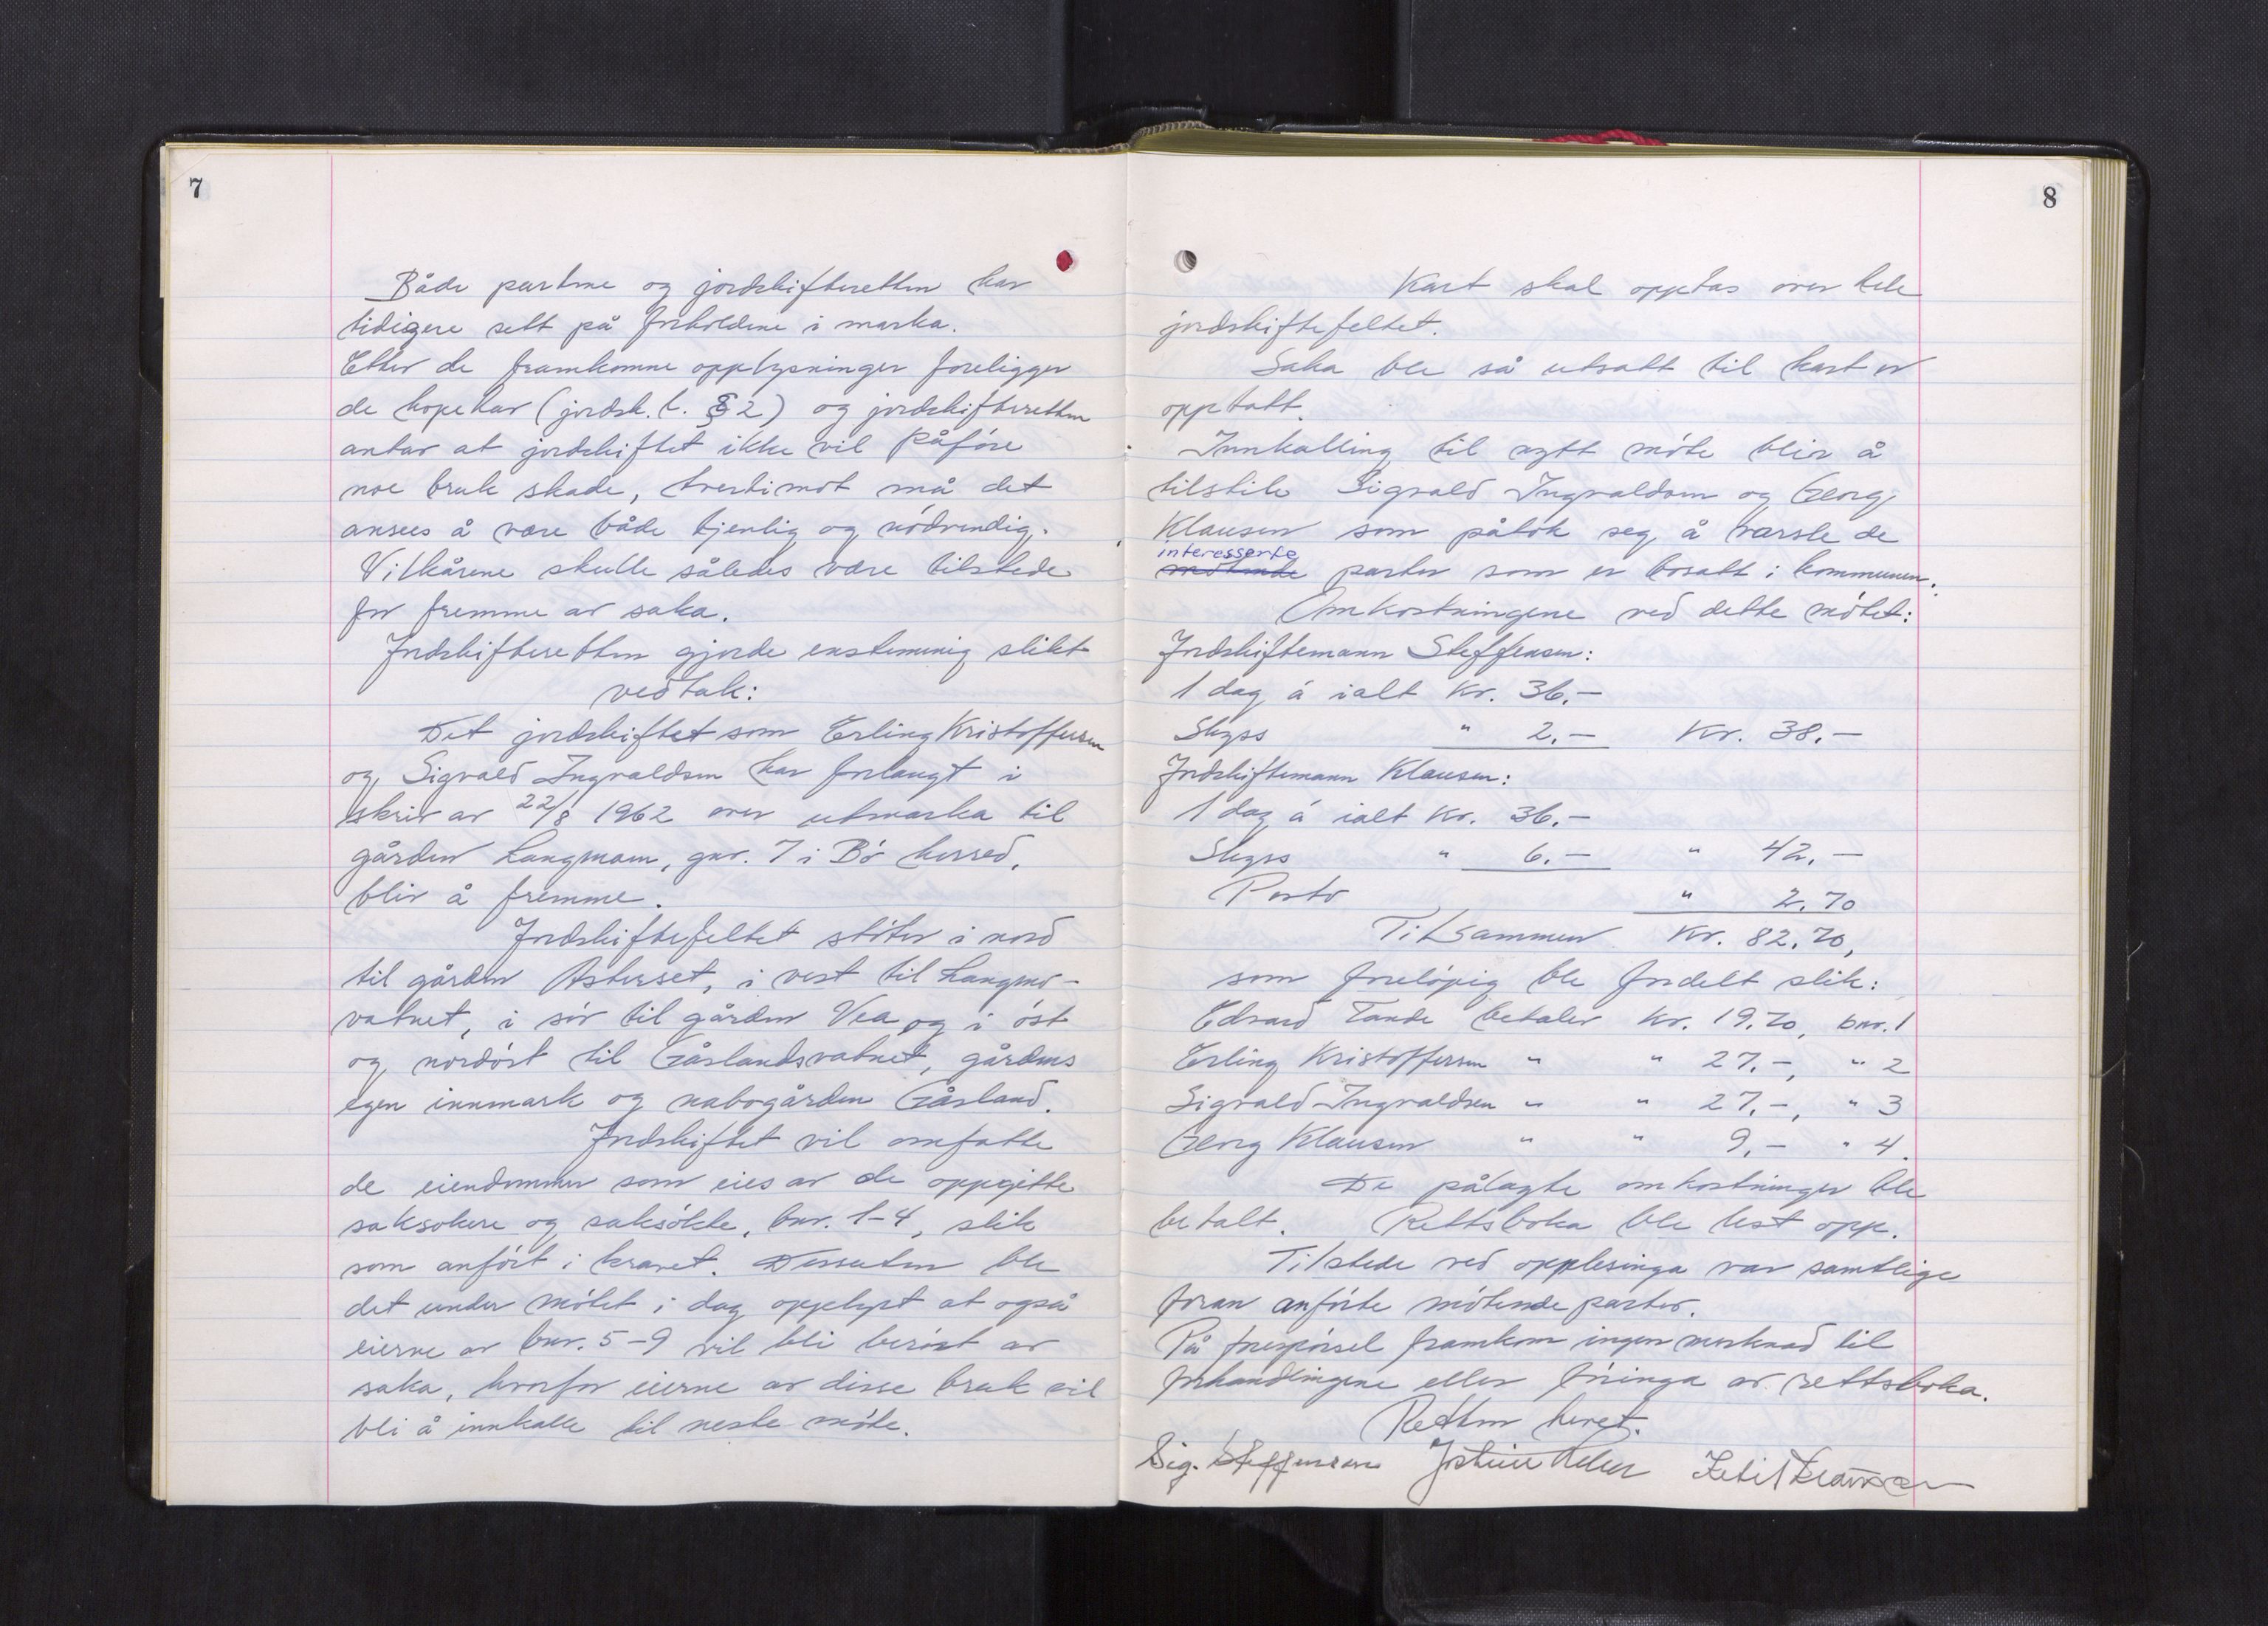 7
Både partene og jordskifteretten har
tidigere sett på forholdene i marka.
Etter de framkomne opplysninger foreligger
de kopekar (jordsk. l. § 2) og jordskifteretten
antar at jordskiftet ikke vil påføre
noe bruk skade, tvertimot må det
ansees å være både tjenlig og nødvendig.
Vilkårene skulle således være tilstede
for fremme av saka.
Jordskifteretten gjorde enstemmig slikt
vedtak:
Det jordskiftet som Erling Kristoffersen
og Sigvald Ingvaldsen har forlangt i
skriv av 22/8 1962 over utmarka til
gården Langmoen, gnr. 7 i Bø herred,
blir å fremme.
Jordskiftefeltet støter i nord
til gården Asterset, i vest til Langmo-
vatnet, i sør til gården Vea og i øst
og nordøst til Gåslandsvatnet, gårdens
egen innmark og nabogården Gåsland.
Jordskiftet vil omfatte
de eiendommer som eies av de oppgitte
saksøkere og saksøkte, bnr. 1-4, slik
som anført i kravet. Dessuten ble
det under møtet i dag opplyst at også
eierne av bnr. 5-9 vil bli berørt av
saka, hvorfor eierne av disse bruk vil
bli å innkalle til neste møte.
8
Kart skal opptas over hele
jordskiftefeltet.
Saka ble så utsatt til kart er
opptatt.
Innkalling til nytt møte blir å
tilstile Sigvald Ingvaldsen og Georg
Klausen som påtok seg å varsle de
interesserte
møtende parter som er bosatt i kommunen.
Omkostningene ved dette møtet:
Jordskiftemann Steffensen:
1 dag á ialt kr. 36.-
Skyss " 2.- Kr. 38.-
Jordskiftemann Klausen:
1 dag á ialt kr. 36.-
Skyss " 6.- " 42.-
Porto " 2.70
Tilsammen Kr. 82.70,
som foreløpig ble fordelt slik:
Edvard Tande betaler kr. 19.70, bnr. 1
Erling Kristoffersen " " 27.-, " 2
Sigvald Ingvaldsen " " 27.-, " 3
Georg Klausen " " 9.- " 4.
De pålagte omkostninger ble
betalt. Rettsboka ble lest opp.
Tilstede ved opplesinga var samtlige
foran anførte møtende parter.
På forespørsel framkom ingen merknad til
forhandlingene eller føringa av rettsboka.
Retten hevet.
Sig. Steffensen